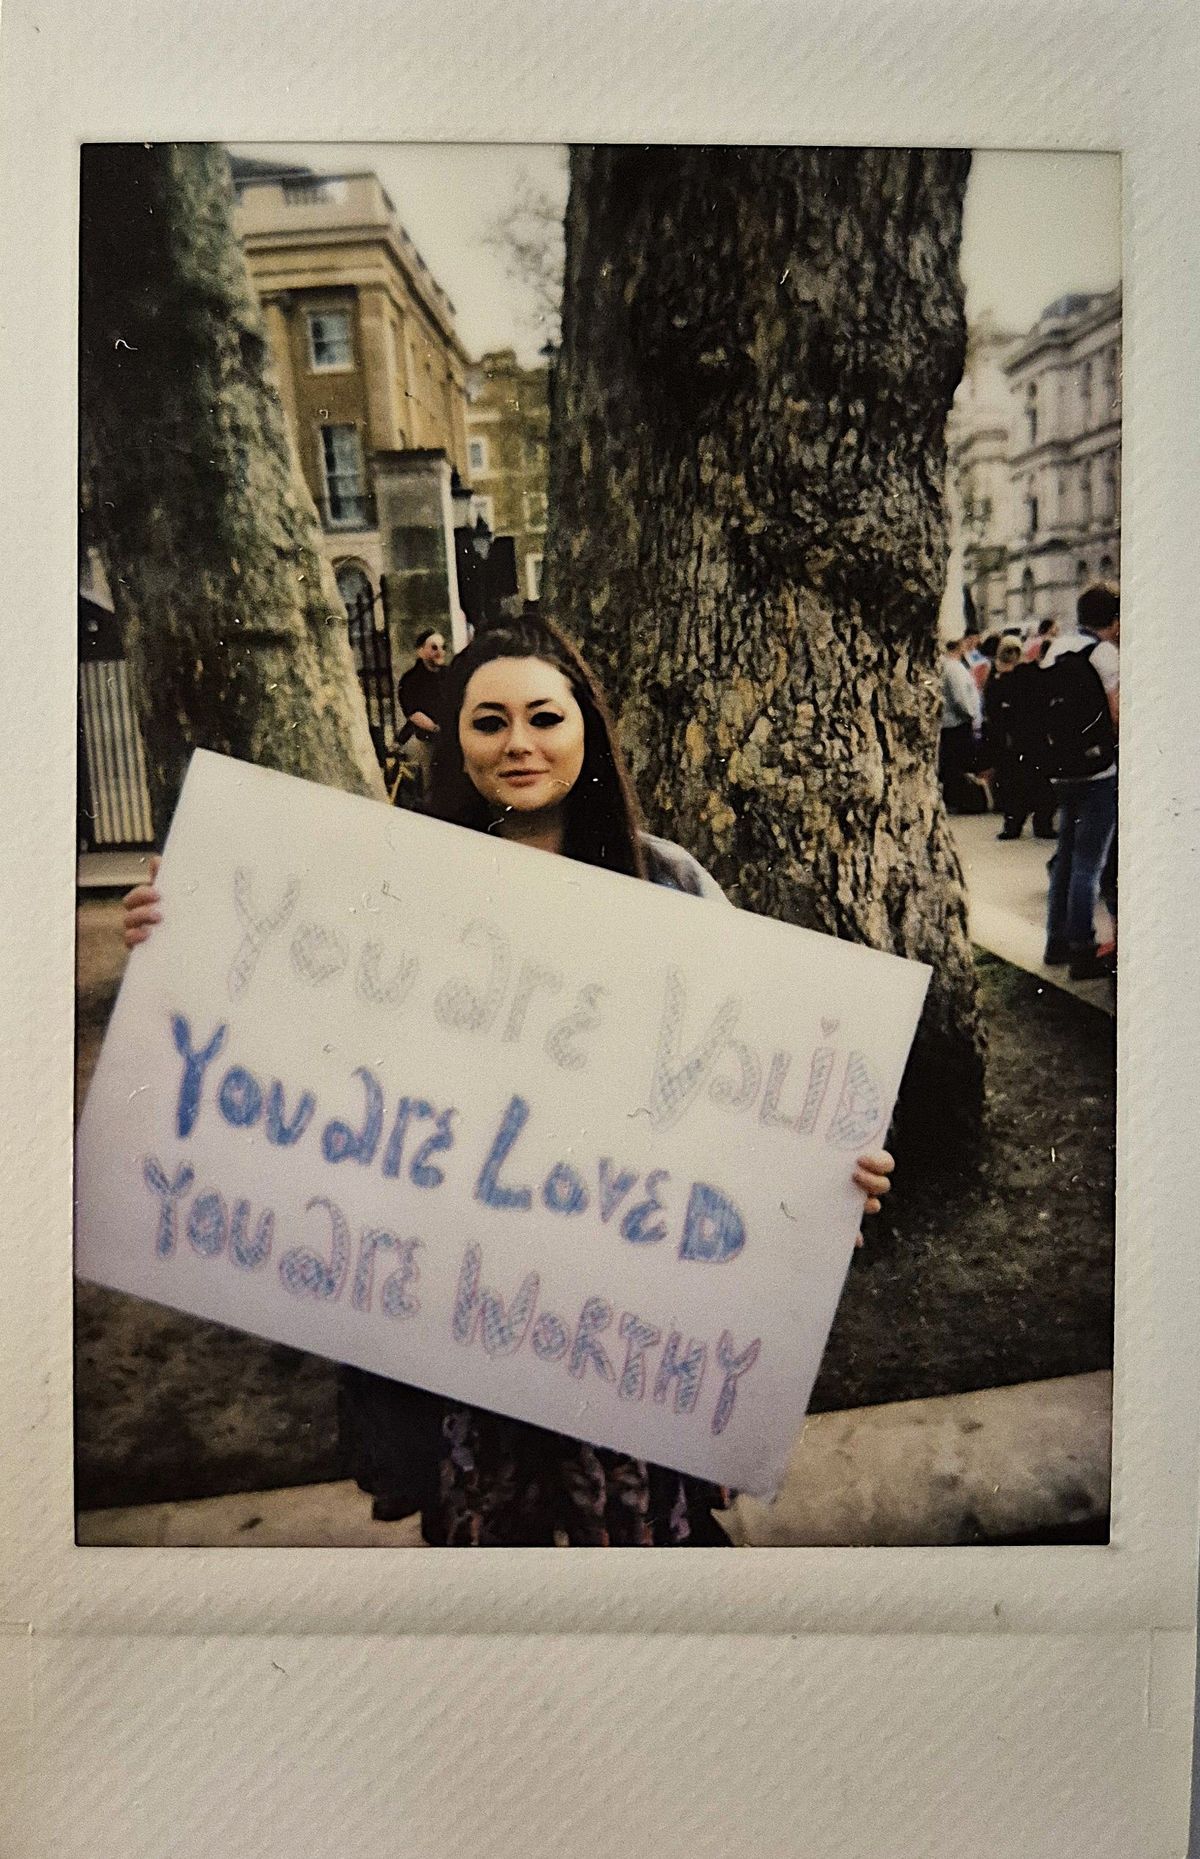 You are Valid
You are LoVED
You are WoRTHY